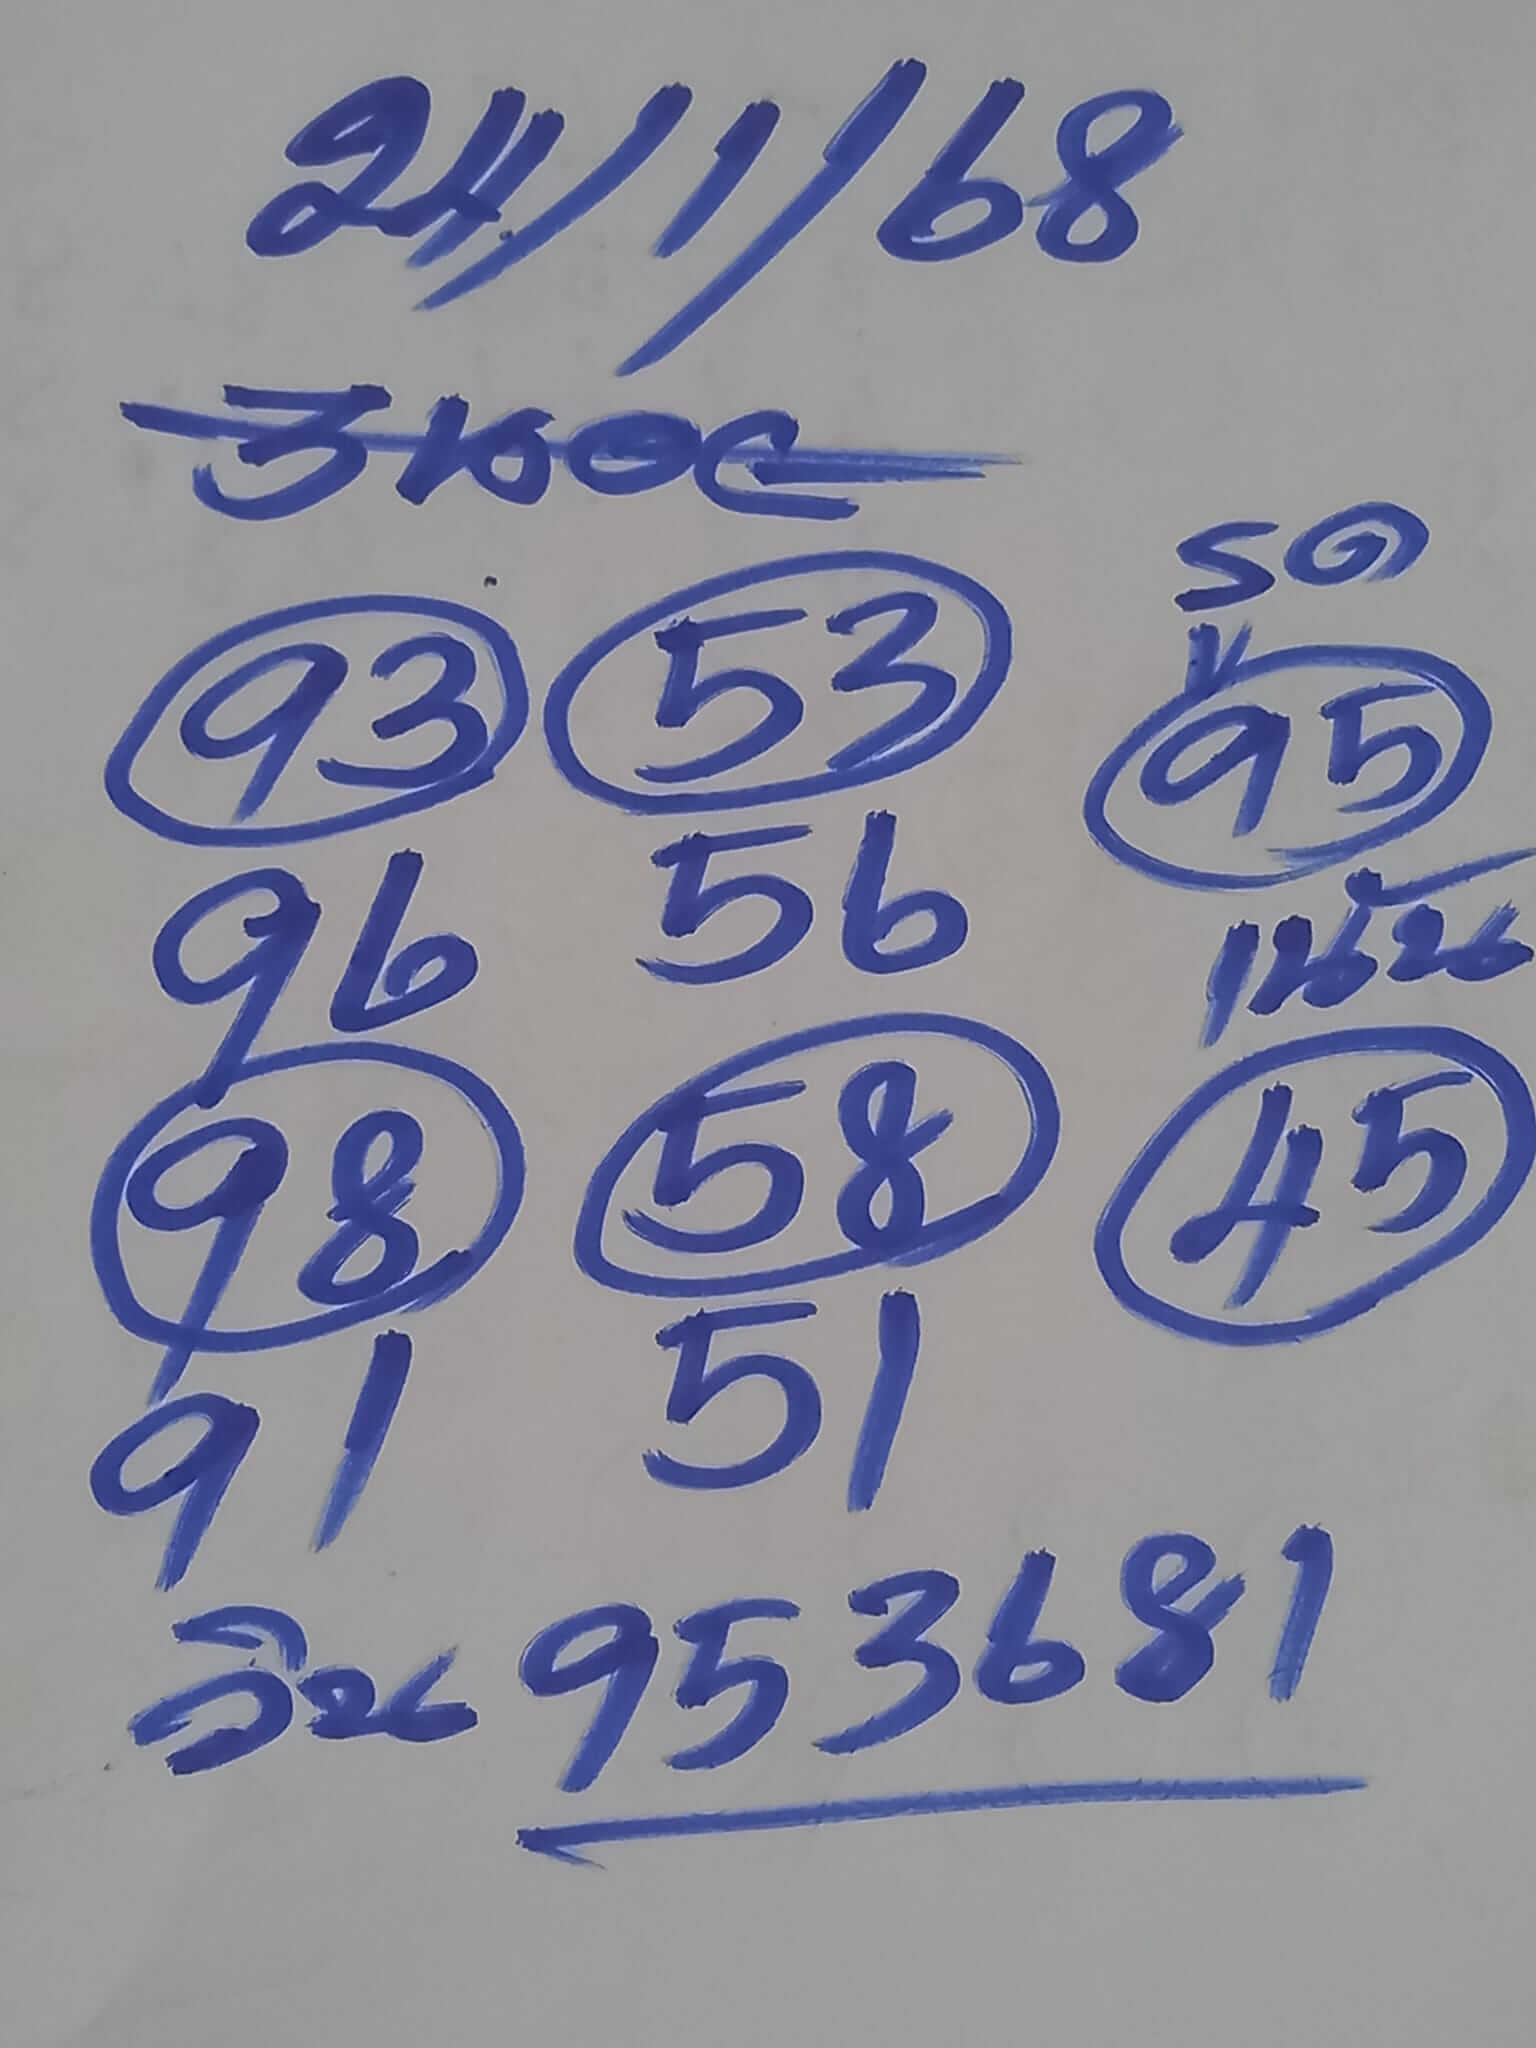 24/1/68
ฮานอย
93 53 รอง
95
96 56
เน้น
98 58 45
91 51
วิน 953681